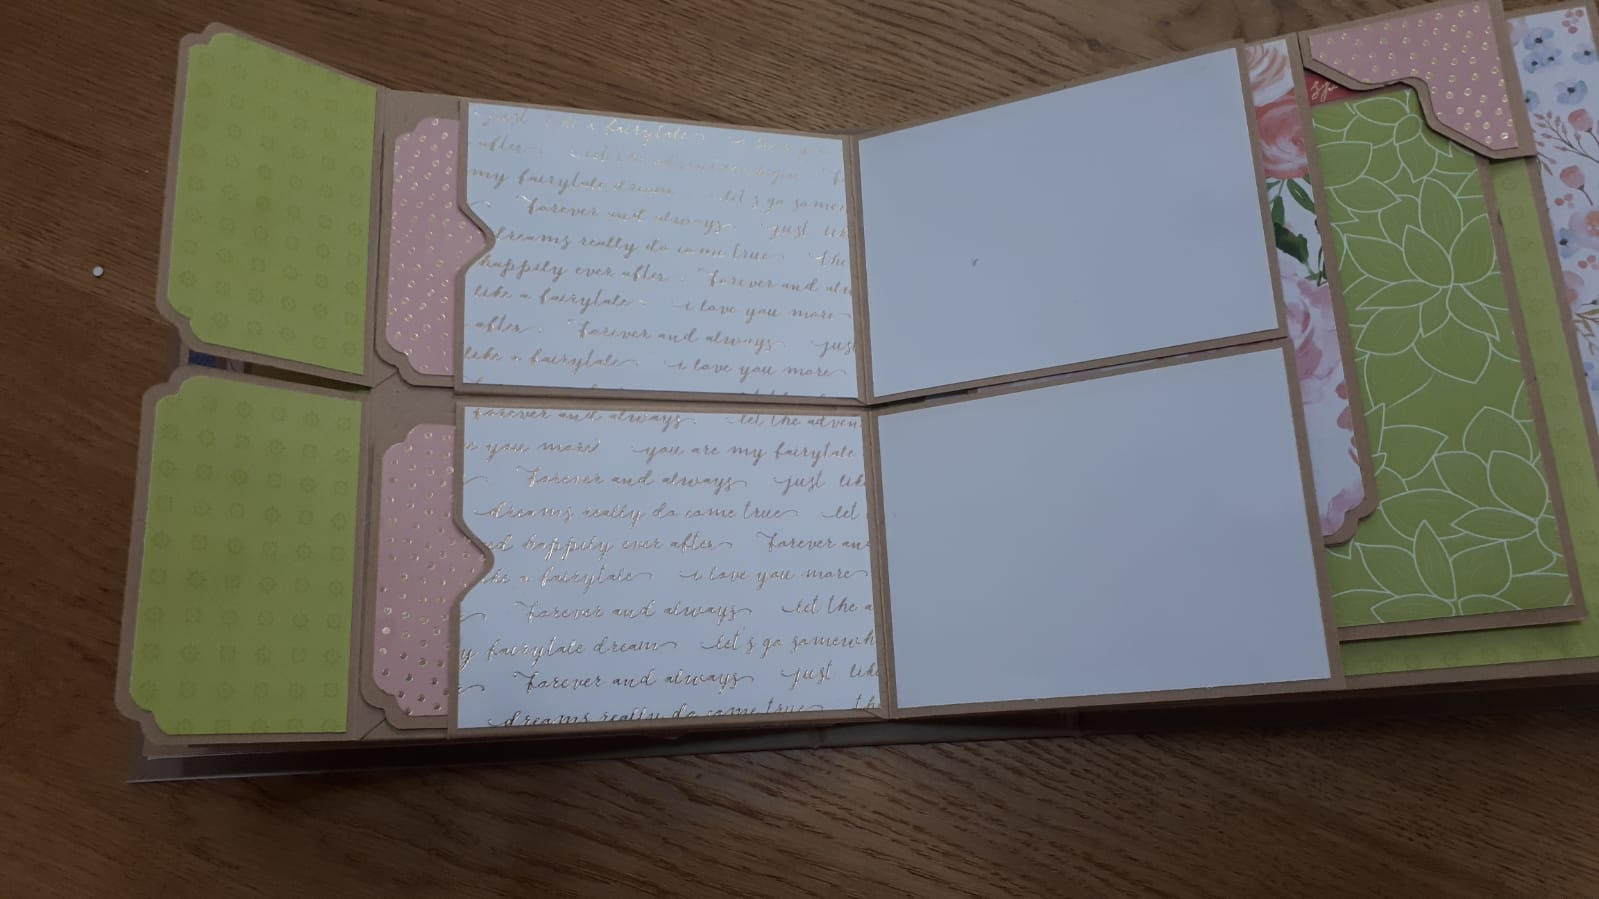 just like a fairytale
after let the adventure begin
my fairytale dream let's go somewh
forever and always just lik
dreams really do come true the
happily ever after forever and alw
like a fairytale i love you more
after forever and always just
like a fairytale i love you more
forever and always let the adven
you more you are my fairytale
forever and always just lik
dreams really do come true let
happily ever after forever an
like a fairytale i love you more
forever and always let the a
y fairytale dream let's go somewh
forever and always just lik
dreams really do come true th